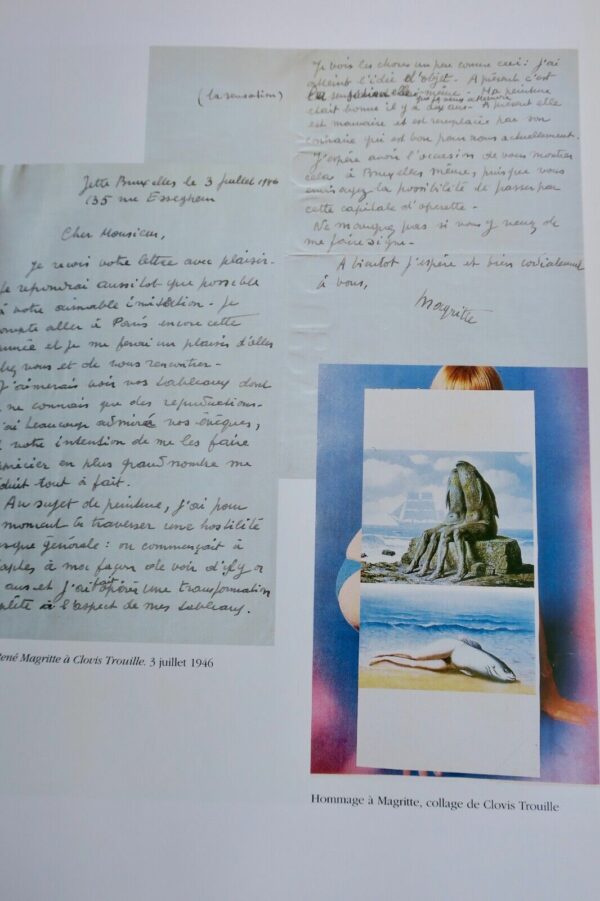 Jette Bruxelles le 3 juillet 1946
135 rue Esseghem
Cher Monsieur,
Je reçois votre lettre avec plaisir.
Je repondrai aussitot que possible
à votre aimable invitation - Je
ompte aller à Paris encore cette
année et je me ferai un plaisir d'aller
hez vous et de vous rencontrer -
J'aimerais voir vos tableaux dont
ne connais que des reproductions -
'ai beaucoup admiré vos évêques,
votre intention de me les faire
précier en plus grand nombre me
éduit tout à fait.
Au sujet de peinture, j'ai pour
moment à traverser une hostilité
esque générale : on commençait à
apter à ma façon de voir d'il y a
ans et j'ai fait opérer une transformation
plète à l'aspect de mes tableaux.
(la sensation)
Je vois les choses un peu comme ceci : j'ai
atteint l'idée d'objet - A présent c'est
elle-même - Ma peinture
était bonne il y a dix ans - A présent elle
est mauvaise et est remplacée par son
contraire qui est bon pour nous actuellement.
J'espère avoir l'occasion de vous montrer
cela à Bruxelles même, puisque vous
envisagez la possibilité de passer par
cette capitale d'opérette -
Ne manquez pas si vous y venez de
me faire signe -
A bientot j'espère et bien cordialement
à vous,
Magritte
ené Magritte à Clovis Trouille. 3 juillet 1946
Hommage à Magritte, collage de Clovis Trouille